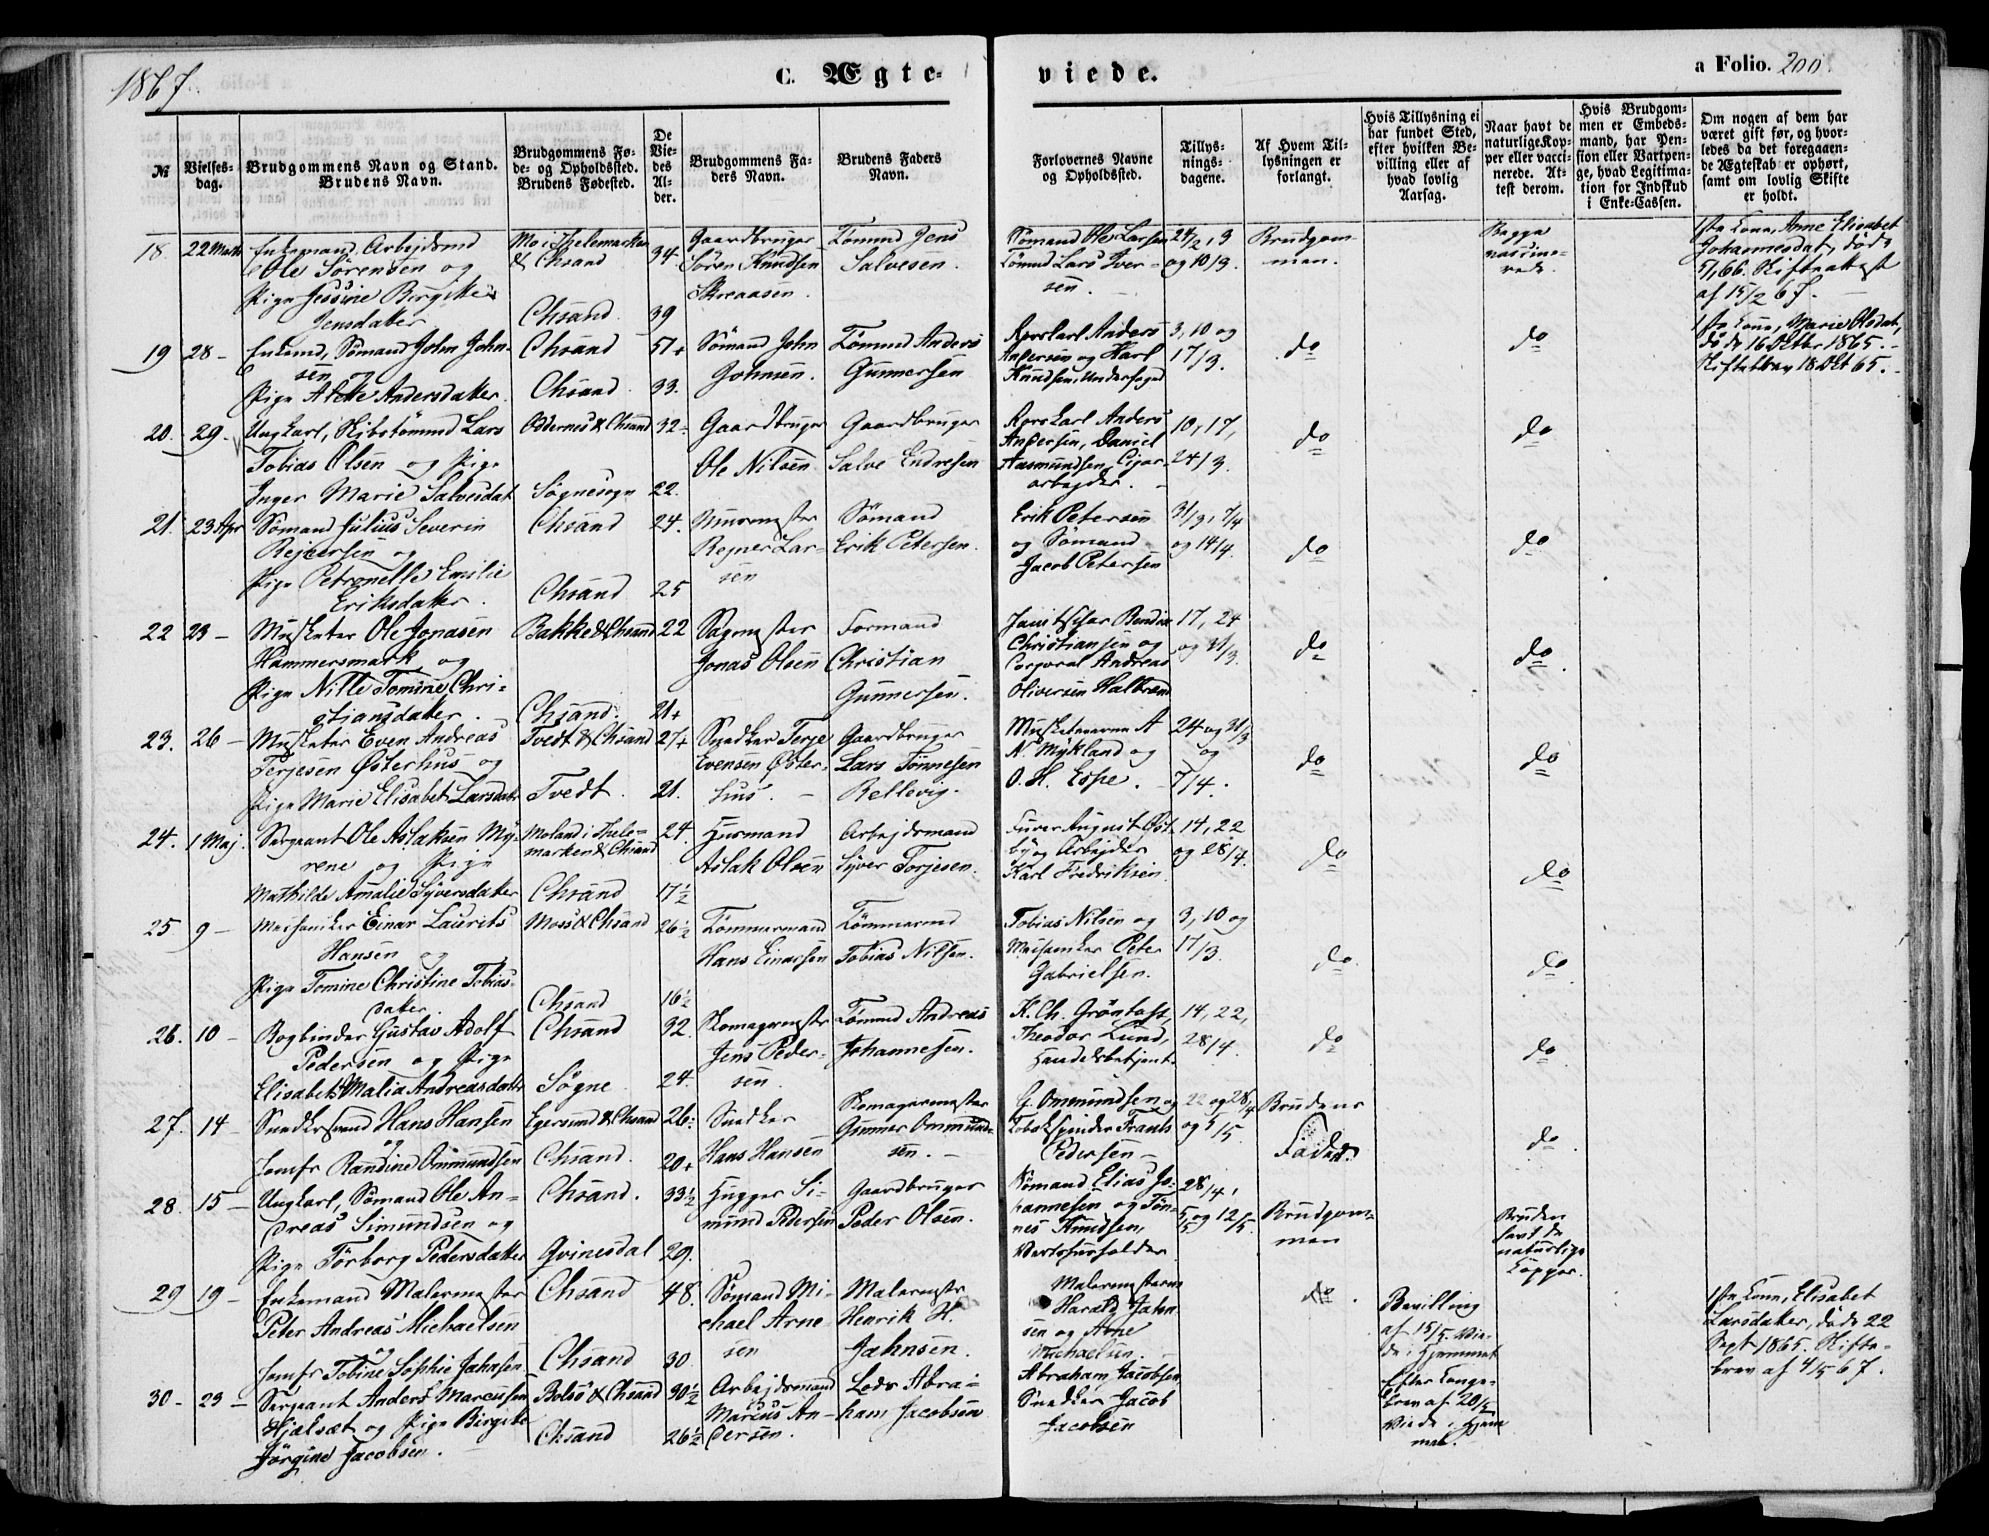 1867.
C. Ægte-
viede.
a Folio. 200.
№
Vielses-
dag.
Brudgommens Navn og Stand.
Brudens Navn.
Brudgommens Fø-
de- og Opholdssted.
Brudens Fødested.
De
Vie-
des
Al-
der.
Brudgommens Fa-
ders Navn.
Brudens Faders
Navn.
Forlovernes Navne
og Opholdssted.
Tillys-
nings-
dagene.
Af Hvem Til-
lysningen er
forlangt.
Hvis Tillysning ei
har fundet Sted,
efter hvilken Be-
villing eller af
hvad lovlig
Aarsag.
Naar havt de
naturlige Kop-
per eller vacci-
nerede. At-
test derom.
Hvis Brudgom-
men er Embeds-
mand, har Pen-
sion eller Vartpen-
ge, hvad Legitima-
tion for Indskud
i Enke-Cassen.
Om nogen af dem har
været gift før, og hvor-
ledes da det foregaaen-
de Ægteskab er ophørt,
samt om lovlig Skifte
er holdt.
18. 22 Marts Enkemand Arbejdsmd
Ole Sörensen og
Pige Jessine Birgitte
Jensdatter
Mo i Thelemarken
& Chsand 34
Chsand. 39
Gaardbruger
Sören Knudsen
Skreaasen.
Tömmd Jens
Salvesen.
Sømand Ole Larsen
Tömmd Lars Iver-
sen.
24/2, 3
og 10/3.
Brudgom-
men.
Begge
vaccine-
rede.
1ste Kone, Anne Elisabet
Johannesdat, døde
5/1 66. Skifteattest
af 15/2 67.
19 28- Enkemd, Sömand John John-
sen og
Pige Alette Andersdatter.
Chsand 51+
Chsand. 33.
Sömand John
Johnsen.
Tömmd Anders
Gunnersen
Rorskarl Anders
Andersen og Karl
Knudsen, Undersøged
3, 10 og
17/3.
do
do
1ste Kone, Marie Olsdat,
døde 16 Octbr 1865.
Skiftebrev 18 Okt 65.
20. 29. Ungkarl, Skibstømmd Lars
Tobias Olsen og Pige
Inger Marie Salvesdat
Oddernes & Chsand 32
Søgnesogn 22.
Gaardbruger
Ole Nilsen
Gaardbruger
Salve Endresen
Rorskarl Anders
Andersen, Daniel
Aasmundsen, Cigar-
arbejder.
10, 17,
24/3.
do
do
21. 23 Apr Sömand Julius Severin
Rejnersen og
Pige Petronelle Emilie
Eriksdatter.
Chsand 24.
Chsand 25
Murmester
Rejner Lar-
sen
Sömand
Erik Petersen.
Erik Petersen
og Sömand
Jacob Petersen
31/3, 7/4
og 14/4.
do
do
22 23- Musketer Ole Jonasen
Hammersmark og
Pige Nille Tomine Chri-
stiansdatter.
Bakke & Chsand 22
Chsand. 21+
Sagmester
Jonas Olsen
Formand
Christian
Gunnersen.
Christiansen og
Corporal Andreas
Oliversen Halbrend
17, 24
og 31/3.
do
do
23. 26- Musketer Even Andreas
Terjesen Østerhus og
Pige Marie Elisabet Larsdatr
Tvedt & Chsand 27+
Tvedt. 21.
Snedker Terje
Evensen Øster-
hus.
Gaardbruger
Lars Tønnesen
Rellevig.
Musketererne A
N. Mykland og
O. H. Espe.
24 og 31/3
og
7/4.
do
do
24. 1 Maj. Sergeant Ole Aslaksen My-
rene og Pige
Mathilde Amalie Syversdatter
Moland i Thele-
marken & Chsand 24
Chsand 17½
Husmand
Aslak Olsen
Arbejdsmand
Syver Torjesen.
Furer August Øst-
by og Arbejder
Karl Fredriksen
14, 22
og 28/4.
do
do
25 9- Maskiniker Einar Laurits
Hansen og
Pige Tomine Christine Tobias-
datter.
Moss & Chsand 26½
Chsand 16½
Tømmermand
Hans Einarsen
Tømmermd
Tobias Nilsen.
Tobias Nilsen og
Peter
Gabrielsen.
3, 10 og
17/3
do.
do
26. 10- Bogbinder Gustav Adolf
Pedersen og Pige
Elisabet Malia Andreasdatter
Chsand 32.
Søgne 24.
Skomagermester
Jens Peder-
sen
Tömmd Andreas
Johannesen.
K. Ch. Gröntoft,
Theodor Lund,
Handelsbetjent
14, 22,
28/4.
do
do
27. 14- Snedkersvend Hans Hansen
og
Jomfr Randine Ommundsen
Egersund & Chsand 26
Chsand. 20+
Snedker
Hans Hansen
Skomagermester
Gunner Ommund-
sen.
G. Ommundsen og
Tobakspinder Frants
Pedersen
22 og 28/4
og 5/5.
Brudens
Fader.
do
28. 15- Ungkarl, Sømand Ole An-
dreas Simundsen og
Pige Törborg Pedersdatter
Chsand. 33½
Qvinesdal 29.
Hugger Si-
mund Pedersen
Gaardbruger
Peder Olsen.
Sømand Elias Jo-
hannesen og Tøn-
nes Knudsen,
Vertshusholder
28/4,
5/5 og 12/5.
Brudgom-
men
Bruden
havt de
naturlige
Kopper.
29 19- Enkemand Malermester
Peter Andreas Michaelsen
og
Jomfr Tobine Sophie Jahnsen
Chsand 48.
Chsand 30
Sömand Mi-
chael Arne-
sen
Malermester
Henrik H.
Jahnsen.
Malermesterne
Harald Jahn-
sen og Arne
Michaelsen.
do.
Bevilling
af 15/5. Vie-
de i Hjemmet
1ste Kone, Elisabet
Larsdatter, døde 22
Sept 1865. Skifte-
brev af 4/5 67.
30- 23- Sergeant Anders Marcussen
Hjelsæt og Pige Birgitte
Jörgine Jacobsen.
Bolsö & Chsand 30½
Chsand 26½
Arbejdsmand
Marcus An-
dersen.
Lods Abra-
ham Jacobsen
Abraham Jacobsen
Snedker Jacob
Jacobsen
Efter Konge-
brev af 20/5
Viede i Hjem-
met.